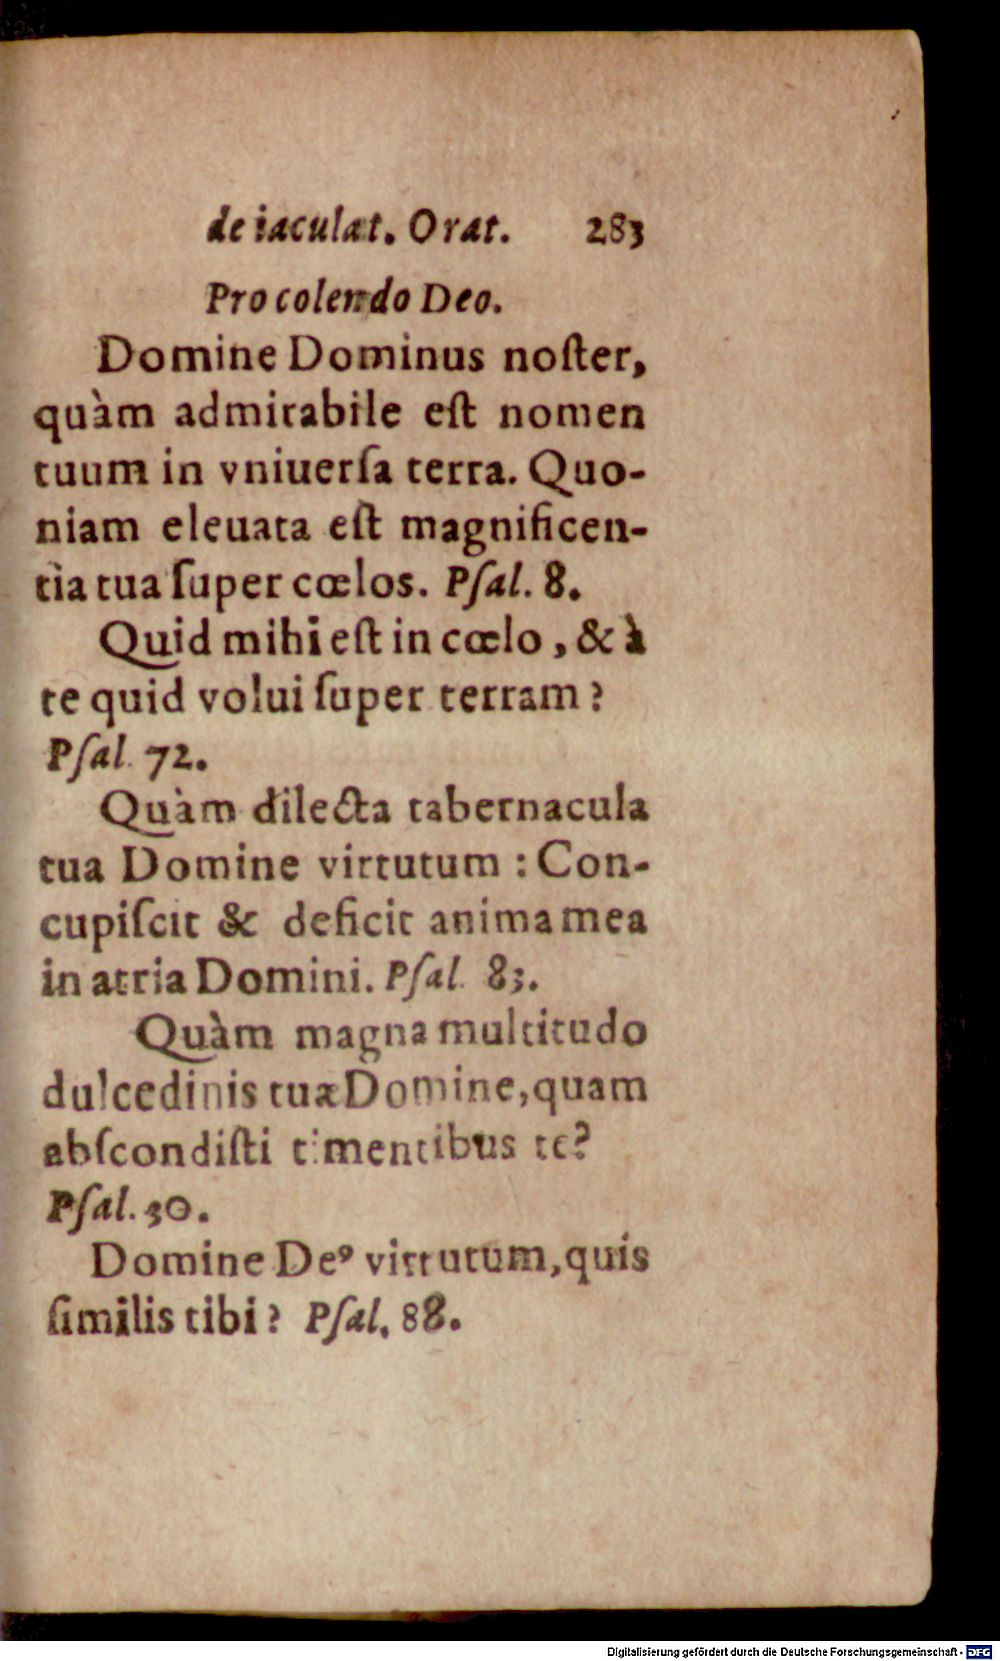 de iaculat. Orat. 283
Pro colendo Deo.
Domine Dominus noſter,
quàm admirabile eſt nomen
tuum in vniuerſa terra. Quo-
niam eleuata eſt magnificen-
tia tua ſuper cœlos. Pſal. 8.
Quid mihi eſt in cœlo, & à
te quid volui ſuper terram?
Pſal. 72.
Quàm dilecta tabernacula
tua Domine virtutum : Con-
cupiſcit & deficit anima mea
in atria Domini. Pſal. 83.
Quàm magna multitudo
dulcedinis tuæ Domine, quam
abſcondiſti timentibus te?
Pſal. 30.
Domine Deꝰ virtutum, quis
ſimilis tibi? Pſal. 88.
Digitalisierung gefördert durch die Deutsche Forschungsgemeinschaft - DFG